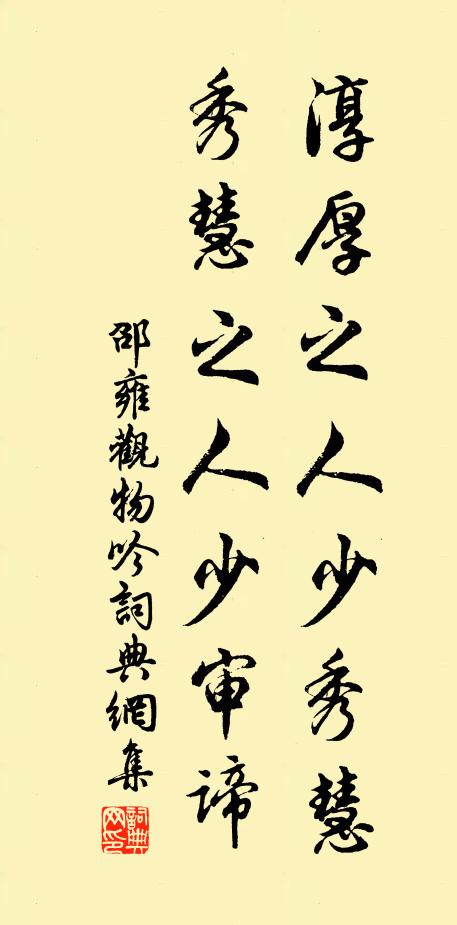 淳厚之人少秀慧
秀慧之人少审諦
邵雍觀物吟詞典網集
詞典网印